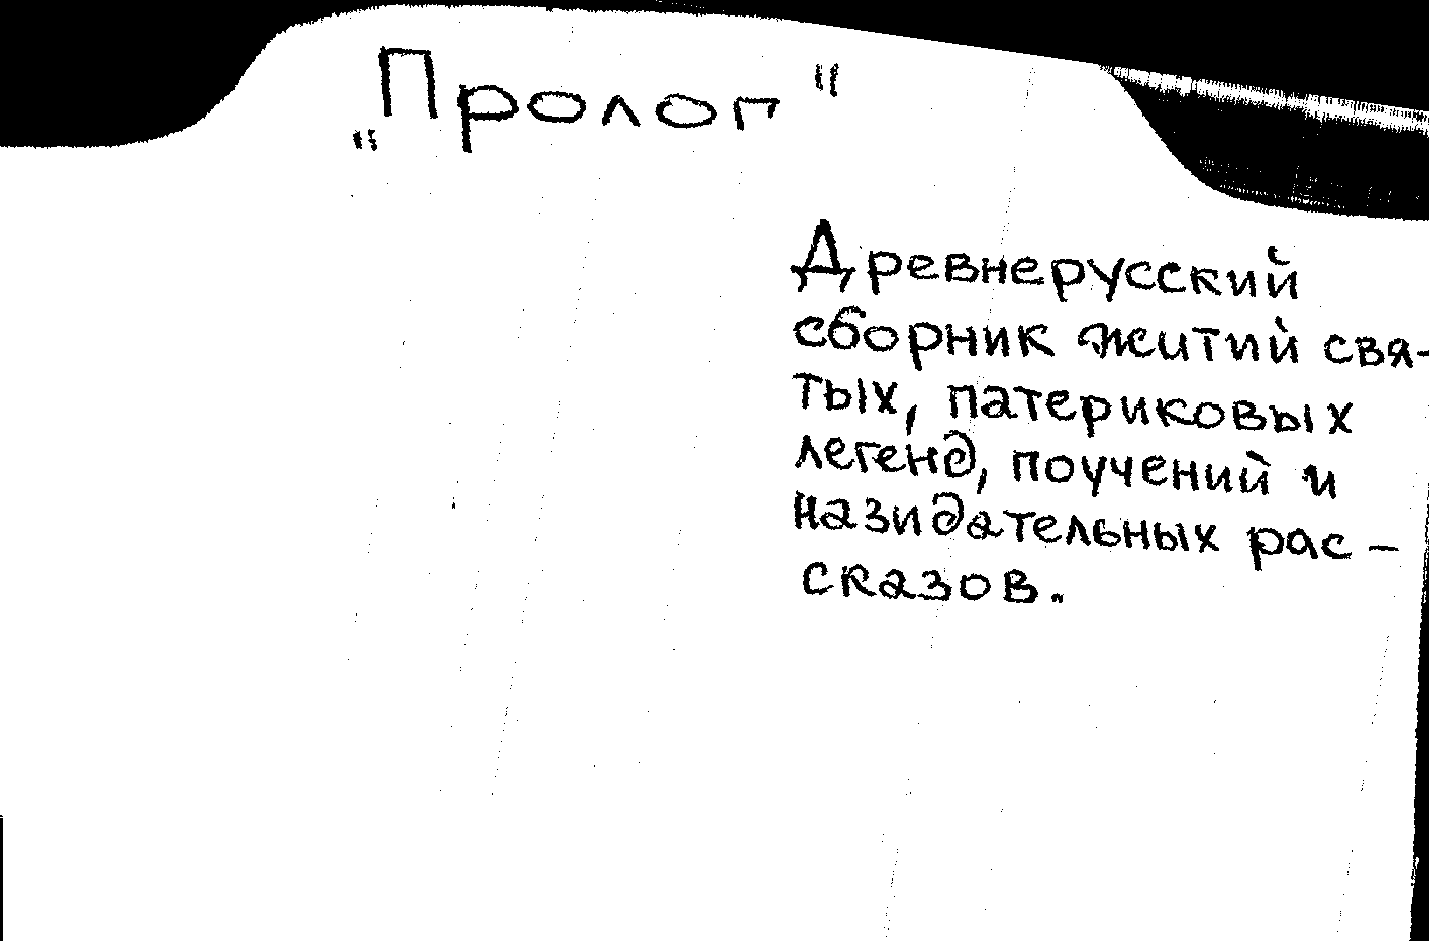 „Пролог“
Древнерусский
сборник житий свя-
тых, патериковых
легенд, поучений и
назидательных рас-
сказов.